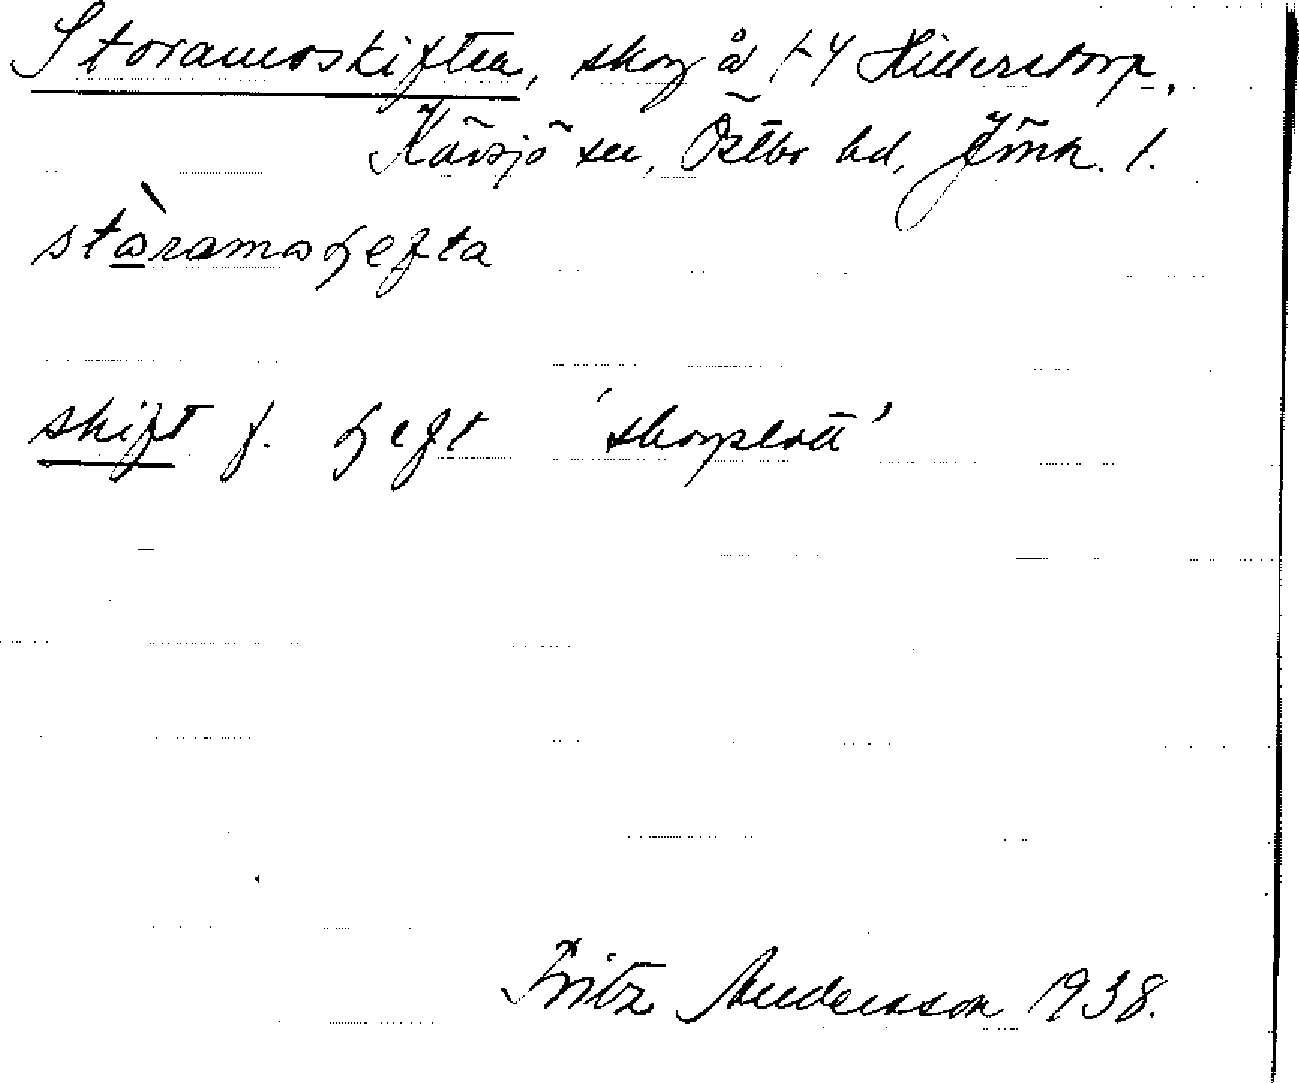 Storamoskiften, skog å 1-4 Hillerstorp,
Kävsjö sn, Östbo hd, Jönk. l.
stòramoʂefta
skift f. ʂeft 'skogslott'
Fritz Andersson 1938.